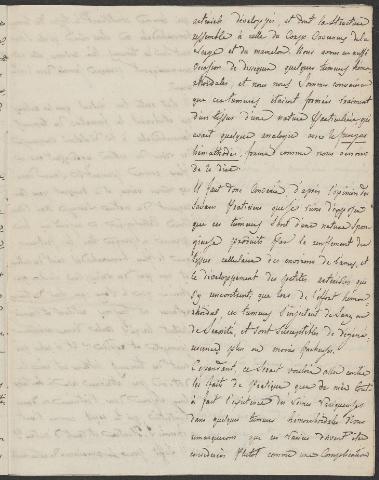 artériels développés, et dont la structure
ressemble à celle du Corps Caverneux de la
Verge et du mamelon. Nous avons eu aussi
occasion de disséquer quelques tumeurs hémor-
rhoïdales, et nous nous sommes convaincu
que ces tumeurs étaient formées vraiment
d'un tissus d'une nature particulière qui
avait quelque analogie avec le fungus
hémathodès, formé comme nous venons
de le dire.
Il faut donc convenir d'après l'opinion des
savans praticiens que je viens d'exposer
que ces tumeurs sont d'une nature spon-
gieuse produits par le renflement du
tissus cellulaire des environs de l'anus, et
le développement des petites artérioles qui
s'y rencontrent, que lors de l'effort hémor-
rhoïdal, ces tumeurs s'injectent de sang ou
de sérosité, et sont susceptibles de dégéné-
rescences plus ou moins fâcheuses.
Cependant, ce serait vouloir aller contre
les faits de pratique que de nier tout
à fait l'existence des veines variqueuses
dans quelques tumeurs hémorrhoïdales. Nous
remarquerons que ces varices doivent être
considérées plutôt comme une Complication